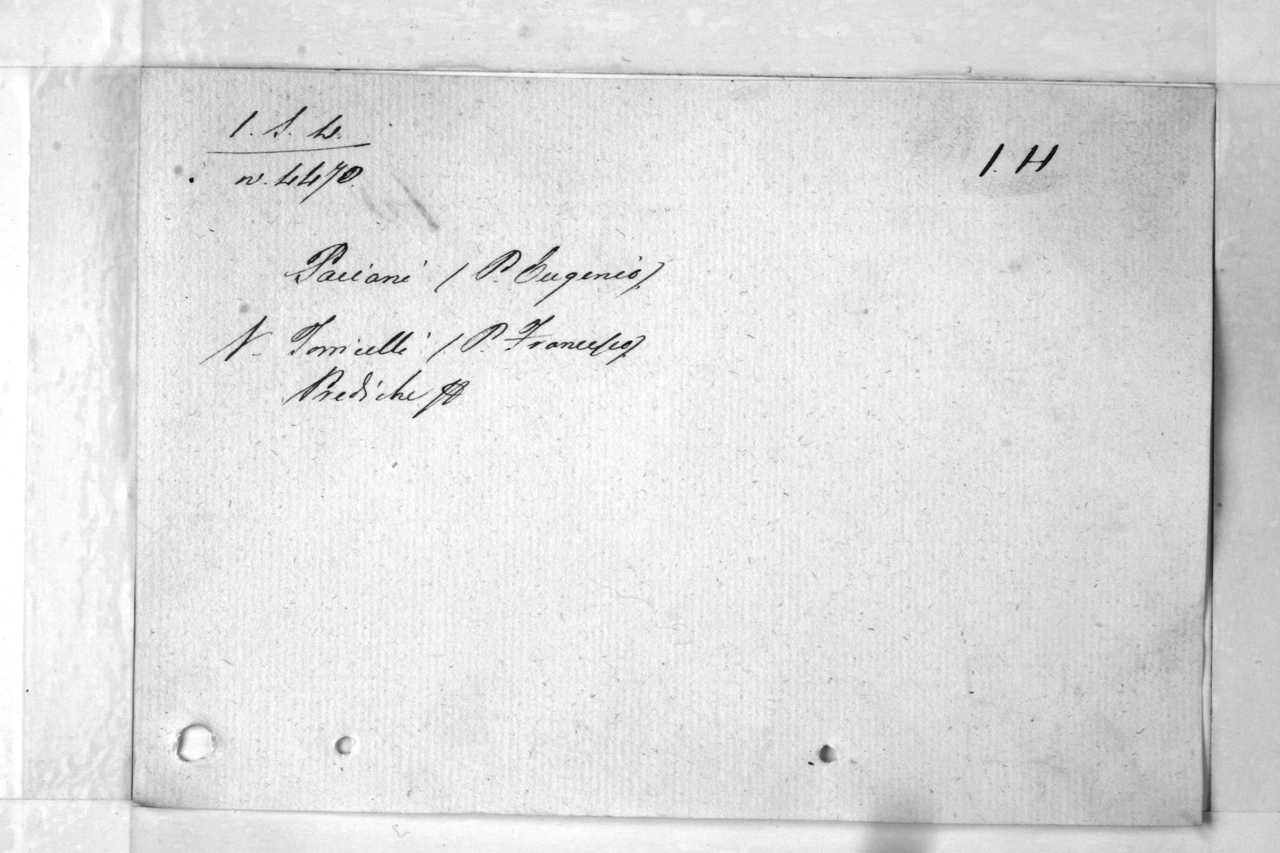 1. S. 4.
n. 4470.
1. H
Paciani (P. Eugenio)
V. Torricelli (P. Francesco)
Prediche